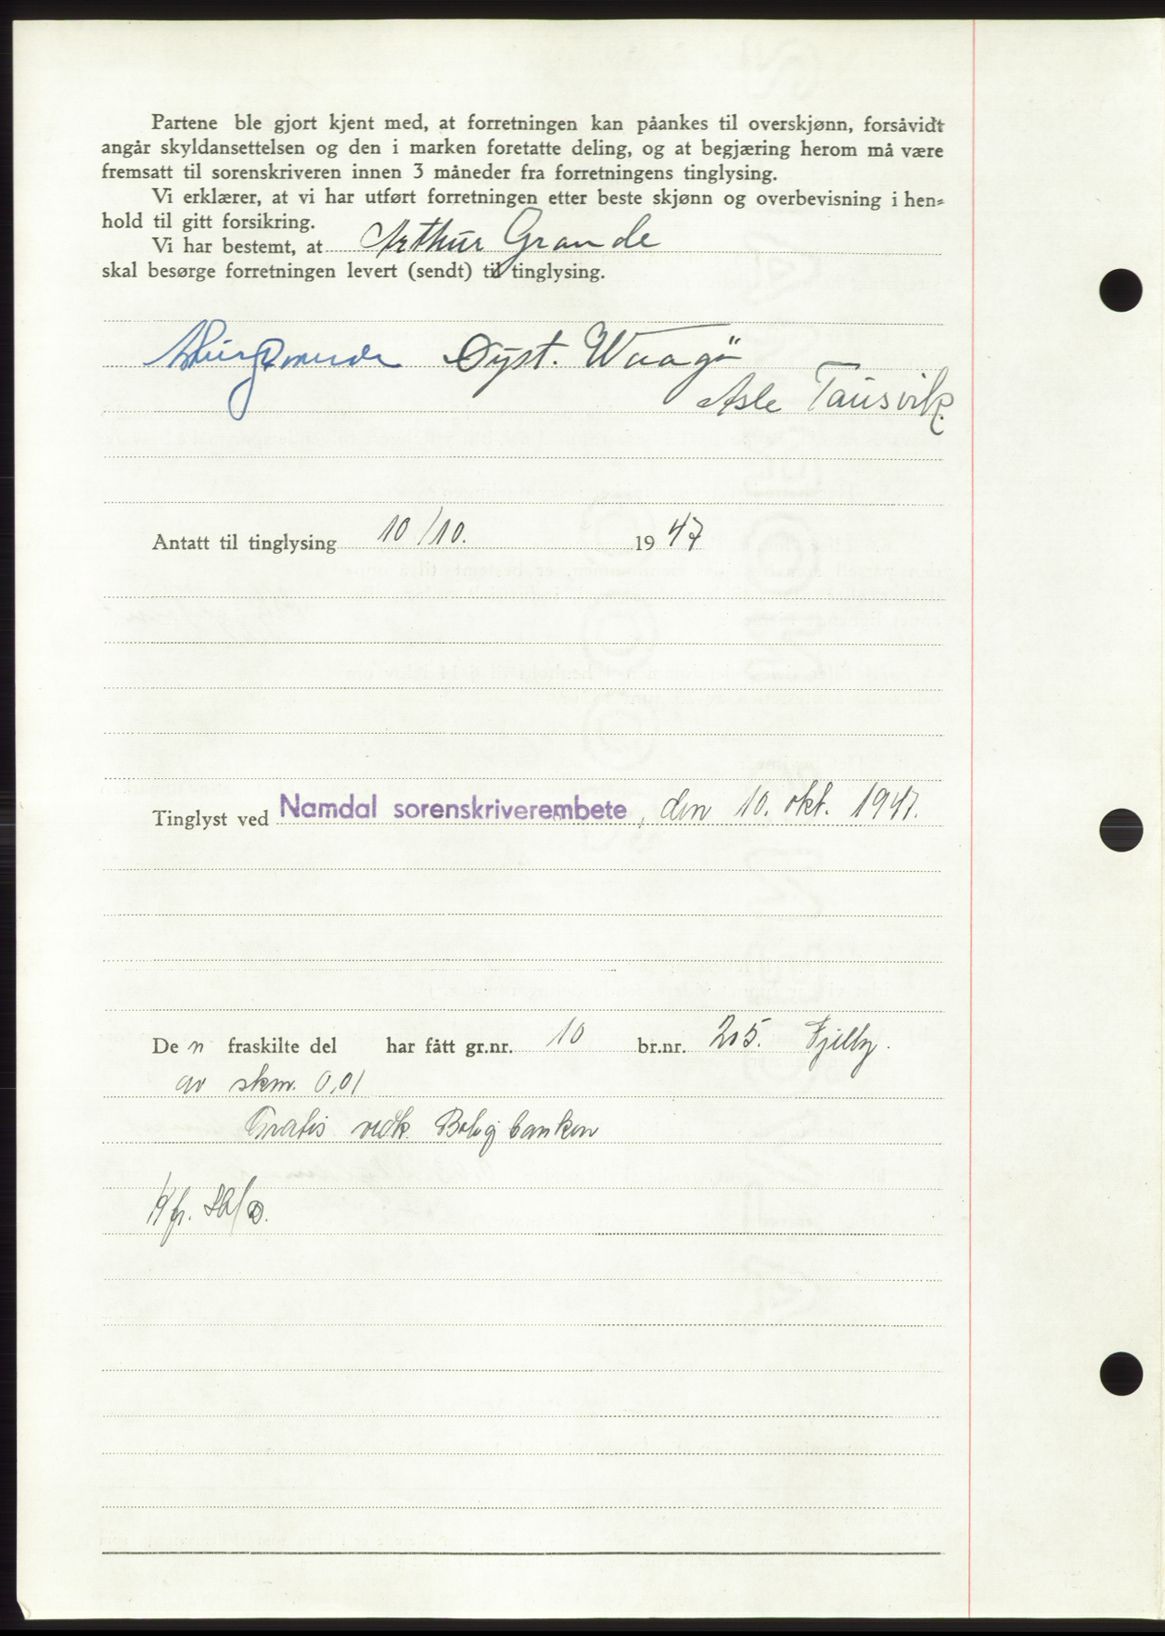 Partene ble gjort kjent med, at forretningen kan påankes til overskjønn, forsåvidt
angår skyldansettelsen og den i marken foretatte deling, og at begjæring herom må være
fremsatt til sorenskriveren innen 3 måneder fra forretningens tinglysing.
Vi erklærer, at vi har utført forretningen etter beste skjønn og overbevisning i hen-
hold til gitt forsikring.
Vi har bestemt, at Arthur Grande
skal besørge forretningen levert (sendt) til tinglysing.
Øyst. Waagö
Asle Tausvik.
Antatt til tinglysing 10/10. 1947
Tinglyst ved Namdal sorenskriverembete, den 10. okt. 1947.
De n fraskilte del har fått gr.nr. 10 br.nr. 205. Fjelly.
av skm. 0,01
Gratis vedk. Boligbanken